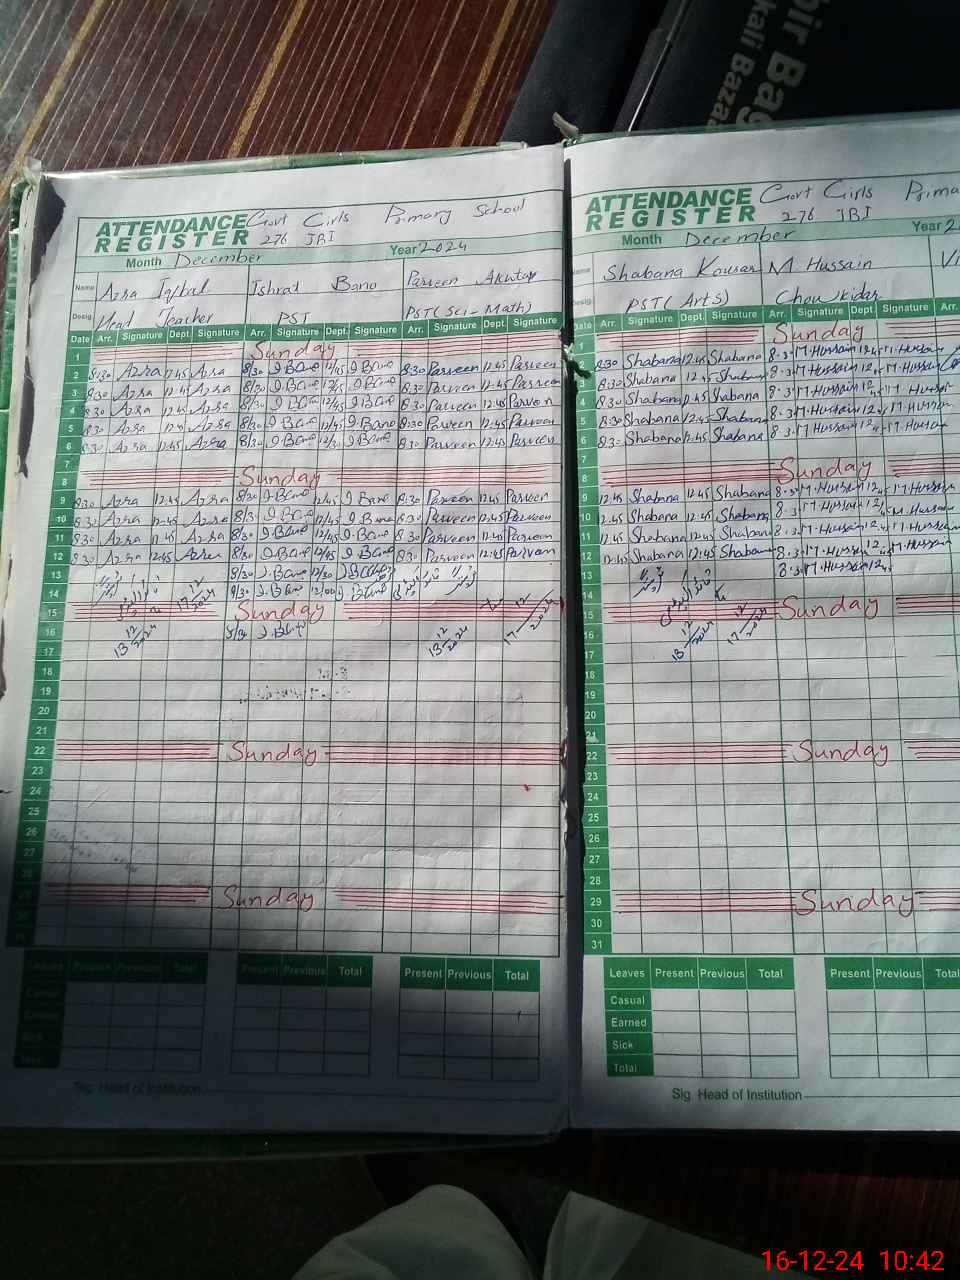 hir Bag
kali Bazaa
ATTENDANCE Govt Girls Primary School
REGISTER 276 JBI
Month December Year 2024
Name Azra Iqbal Ishrat Bano Parveen Akhtar
Desig. Head Teacher PST PST (Sci-Math)
Date Arr. Signature Dept. Signature Arr. Signature Dept. Signature Arr. Signature Dept. Signature
1 Sunday
2 8:30 Azra 12:45 Azra 8/30 I Bano 12/45 I Bano 8:30 Parveen 12:45 Parveen
3 8:30 Azra 12:45 Azra 8/30 I Bano 12/45 I Bano 8:30 Parveen 12:45 Parveen
4 8:30 Azra 12:45 Azra 8/30 I Bano 12/45 I Bano 8:30 Parveen 12:45 Parveen
5 8:30 Azra 12:45 Azra 8/30 I Bano 12/45 I Bano 8:30 Parveen 12:45 Parveen
6 8:30 Azra 12:45 Azra 8/30 I Bano 12/30 I Bano 8:30 Parveen 12:45 Parveen
7
8 Sunday
9 8:30 Azra 12:45 Azra 8/30 I Bano 12/45 I Bano 8:30 Parveen 12:45 Parveen
10 8:30 Azra 12:45 Azra 8/30 I Bano 12/45 I Bano 8:30 Parveen 12:45 Parveen
11 8:30 Azra 12:45 Azra 8/30 I Bano 12/45 I Bano 8:30 Parveen 12:45 Parveen
12 8:30 Azra 12:45 Azra 8/30 I Bano 12/45 I Bano 8:30 Parveen 12:45 Parveen
13 8/30 I Bano 12/30 I Bano
14 8/30 I Bano 12/00 I Bano
17 12/2024
17 12/2024
15 Sunday
16 8/30 I Bano
13 12/2024
13 12/2024
17
18
19
20
21
22 Sunday
23
24
25
26
27
28
29 Sunday
30
31
Leaves Present Previous Total Present Previous Total Present Previous Total
Casual
Earned
Sick
Total
Sig. Head of Institution
ATTENDANCE Govt Girls Prima
REGISTER 276 JBI
Month December Year 2
Name Shabana Kousar M Hussain
Desig. PST (Arts) Chowkidar
Date Arr. Signature Dept. Signature Arr. Signature Dept. Signature Arr.
1 Sunday
2 8:30 Shabana 12:45 Shabana 8:3 M.Hussain 12:45 M.Hussain
3 8:30 Shabana 12:45 Shabana 8:3 M.Hussain 12 M.Hussain
4 8:30 Shabana 12:45 Shabana 8:3 M.Hussain 12 M Hussain
5 8:30 Shabana 12:45 Shabana 8:3 M.Hussain 12 M.Hussain
6 8:30 Shabana 12:45 Shabana 8:3 M.Hussain 12 M.Hussain
7
8 Sunday
9 12:45 Shabana 12:45 Shabana 8:3 M.Hussain 12:45 M.Hussain
10 12:45 Shabana 12:45 Shabana 8:3 M.Hussain 12 M.Hussain
11 12:45 Shabana 12:45 Shabana 8:3 M.Hussain 12 M.Hussain
12 12:45 Shabana 12:45 Shabana 8:3 M.Hussain 12 M.Hussain
13 8:3 M.Hussain 12:45
14
15 Sunday
13 12/2024 17 12/2024
16
17
18
19
20
21
22 Sunday
23
24
25
26
27
28
29 Sunday
30
31
Leaves Present Previous Total Present Previous Total
Casual
Earned
Sick
Total
Sig. Head of Institution
16-12-24 10:42